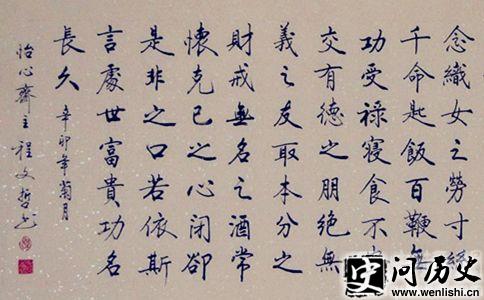 念織女之勞寸絲
千命匙飯百鞭無
功受祿寢食不
交有德之朋絕無
義之友取本分之
財戒無名之酒常
懷克己之心閉卻
是非之口若依斯
言處世富貴功名
長久 辛卯年菊月
怡心齋主程文哲書
史问历史
www.wenlishi.cn